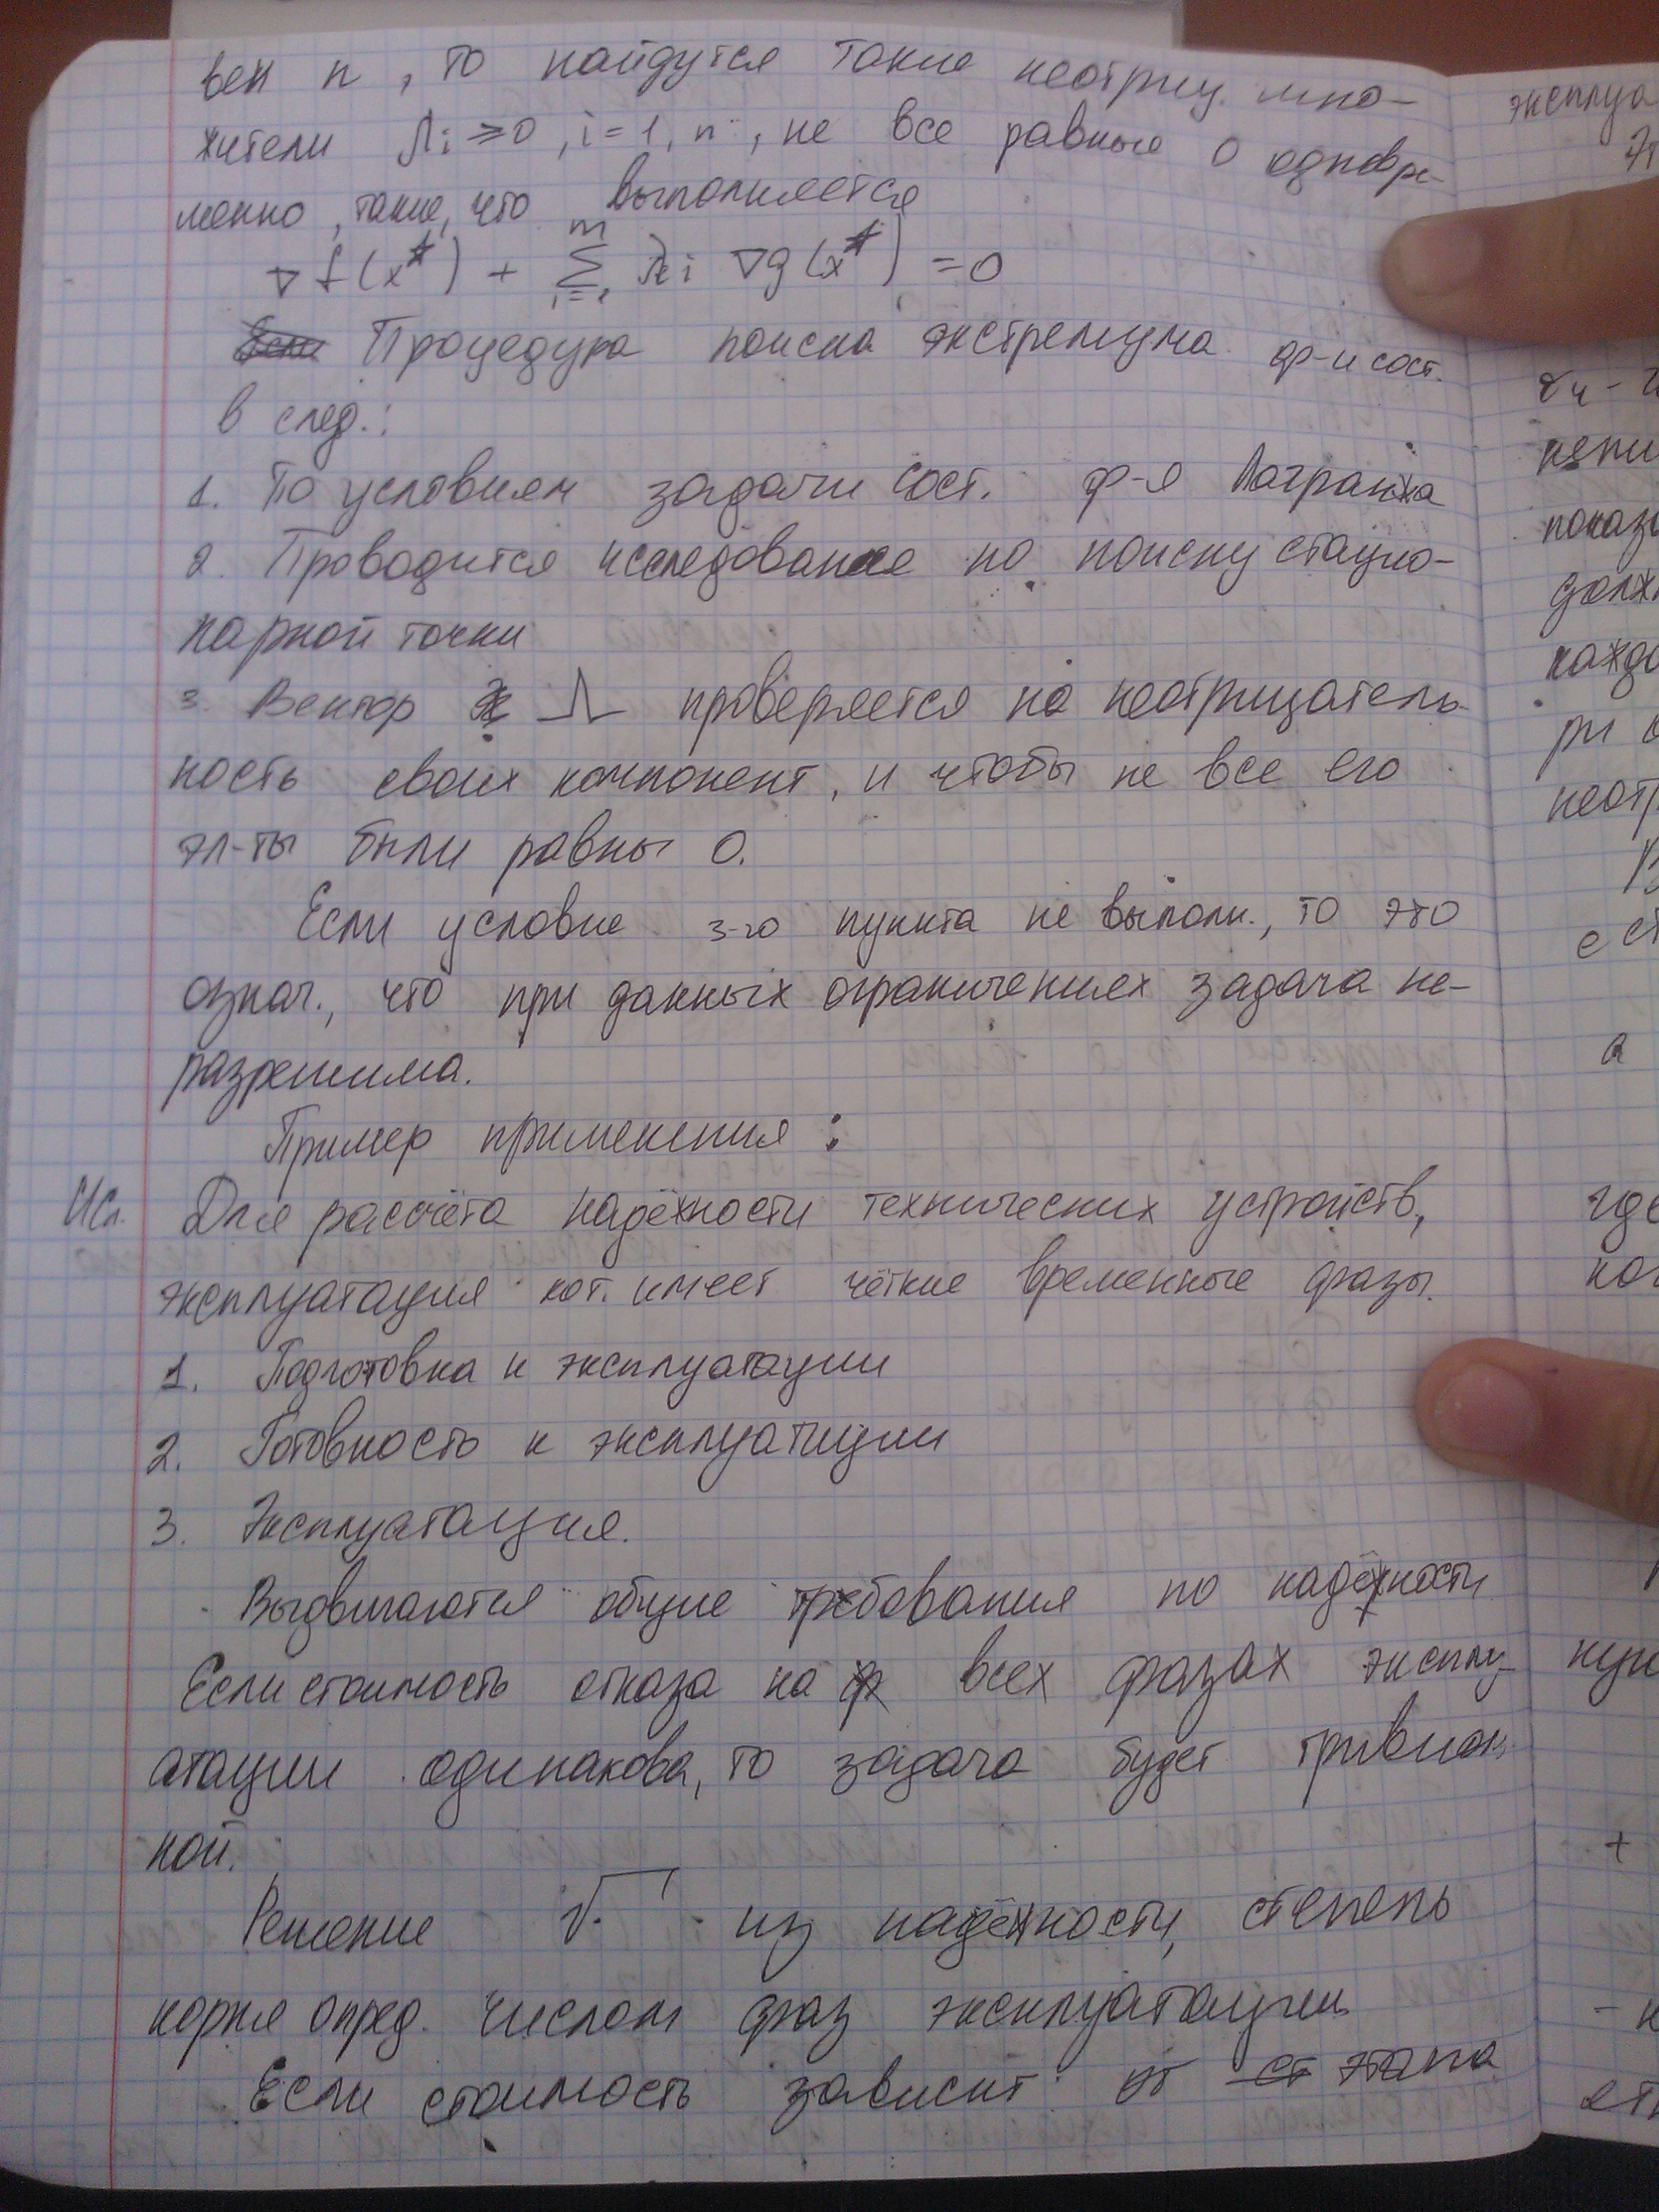 вен n, то найдутся такие неотриц. мно-
жители λi ≥ 0, i = 1, n, не все равные 0 одновре-
менно, такие, что выполняется
∇f(x*) + Σ_{i=1}^{m} λi ∇g(x*) = 0
Процедура поиска экстремума ф-и сост.
в след.:
1. По условиям задачи сост. ф-я Лагранжа
2. Проводится исследование по поиску стацио-
нарной точки
3. Вектор Λ проверяется на неотрицатель-
ность своих компонент, и чтобы не все его
эл-ты были равны 0.
Если условие 3-го пункта не выполн., то это
означ., что при данных ограничениях задача не-
разрешима.
Пример применения:
Исп. Для рассчёта надёжности технических устройств,
эксплуатация кот. имеет чёткие временные фазы.
1. Подготовка к эксплуатации
2. Готовность к эксплуатации
3. Эксплуатация.
Выдвигаются общие требования по надёжности
Если стоимость отказа на всех фазах эксплу-
атации одинакова, то задача будет тривиаль-
ной.
Решение √ из надёжности, степень
корня опред. числом фаз эксплуатации
Если стоимость зависит от этапа
эксплуа
непи
показ
долж
каждо
ри
неотр
а
где
+